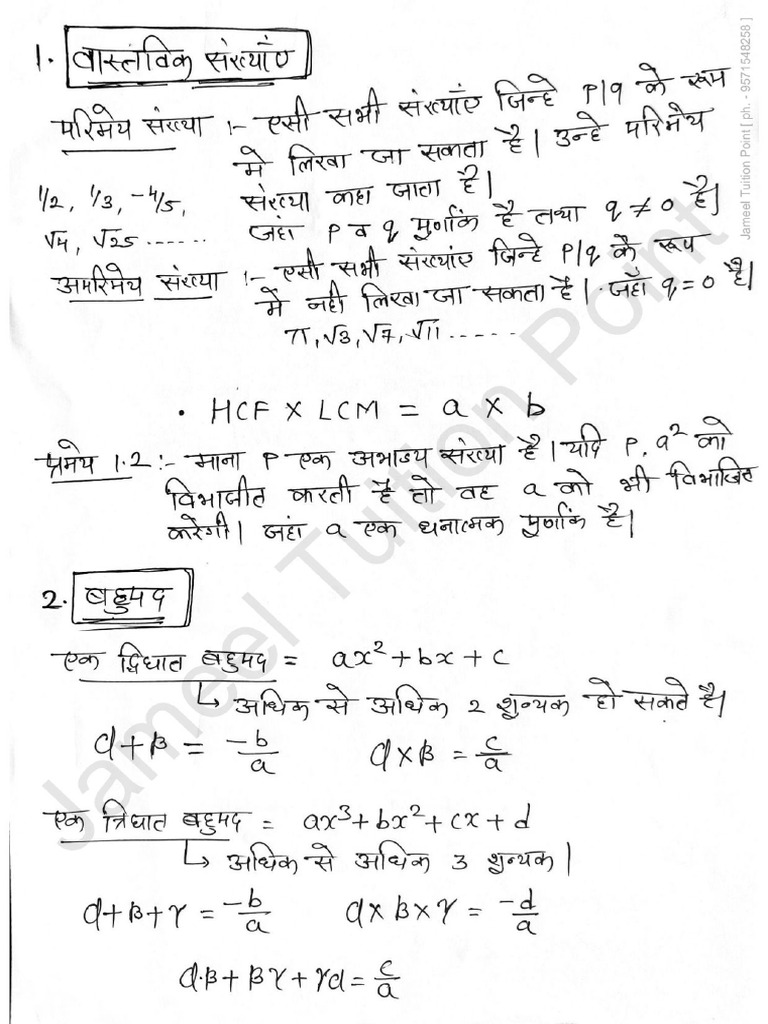 1. वास्तविक संख्याएँ
परिमेय संख्या :- एसी सभी संख्याएँ जिन्हे P/q के रूप
मे लिखा जा सकता है। उन्हे परिमेय
1/2, 1/3, -4/5, संख्या कहा जाता है।
√4, √25...... जहां P व q पूर्णांक है तथा q ≠ 0 है।
अपरिमेय संख्या :- एसी सभी संख्याएं जिन्हे P/q के रूप
में नही लिखा जा सकता है। जहाँ q = 0 है।
π, √3, √7, √11 ......
• HCF × LCM = a × b
प्रमेय 1.2 :- माना P एक अभाज्य संख्या है। यदि P, a² को
विभाजीत करती है तो वह a को भी विभाजित
करेगी। जहां a एक धनात्मक पूर्णांक है।
2. बहुपद
एक द्विघात बहुपद = ax² + bx + c
↳ अधिक से अधिक 2 शुन्यक हो सकते है।
α + β = -b/a α × β = c/a
एक त्रिघात बहुपद = ax³ + bx² + cx + d
↳ अधिक से अधिक 3 शुन्यक।
α + β + γ = -b/a α × β × γ = -d/a
α.β + βγ + γα = c/a
Jameel Tuition Point
Jameel Tuition Point [ ph. - 9571548258 ]